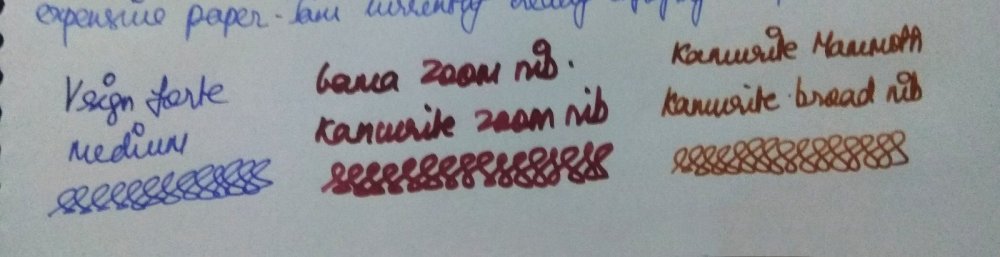 expensive paper. Iam currently
Vsign forte
medium
Gama Zoom nib.
Kanwrite zoom nib
Kanwrite Mammoth
Kanwrite broad nib